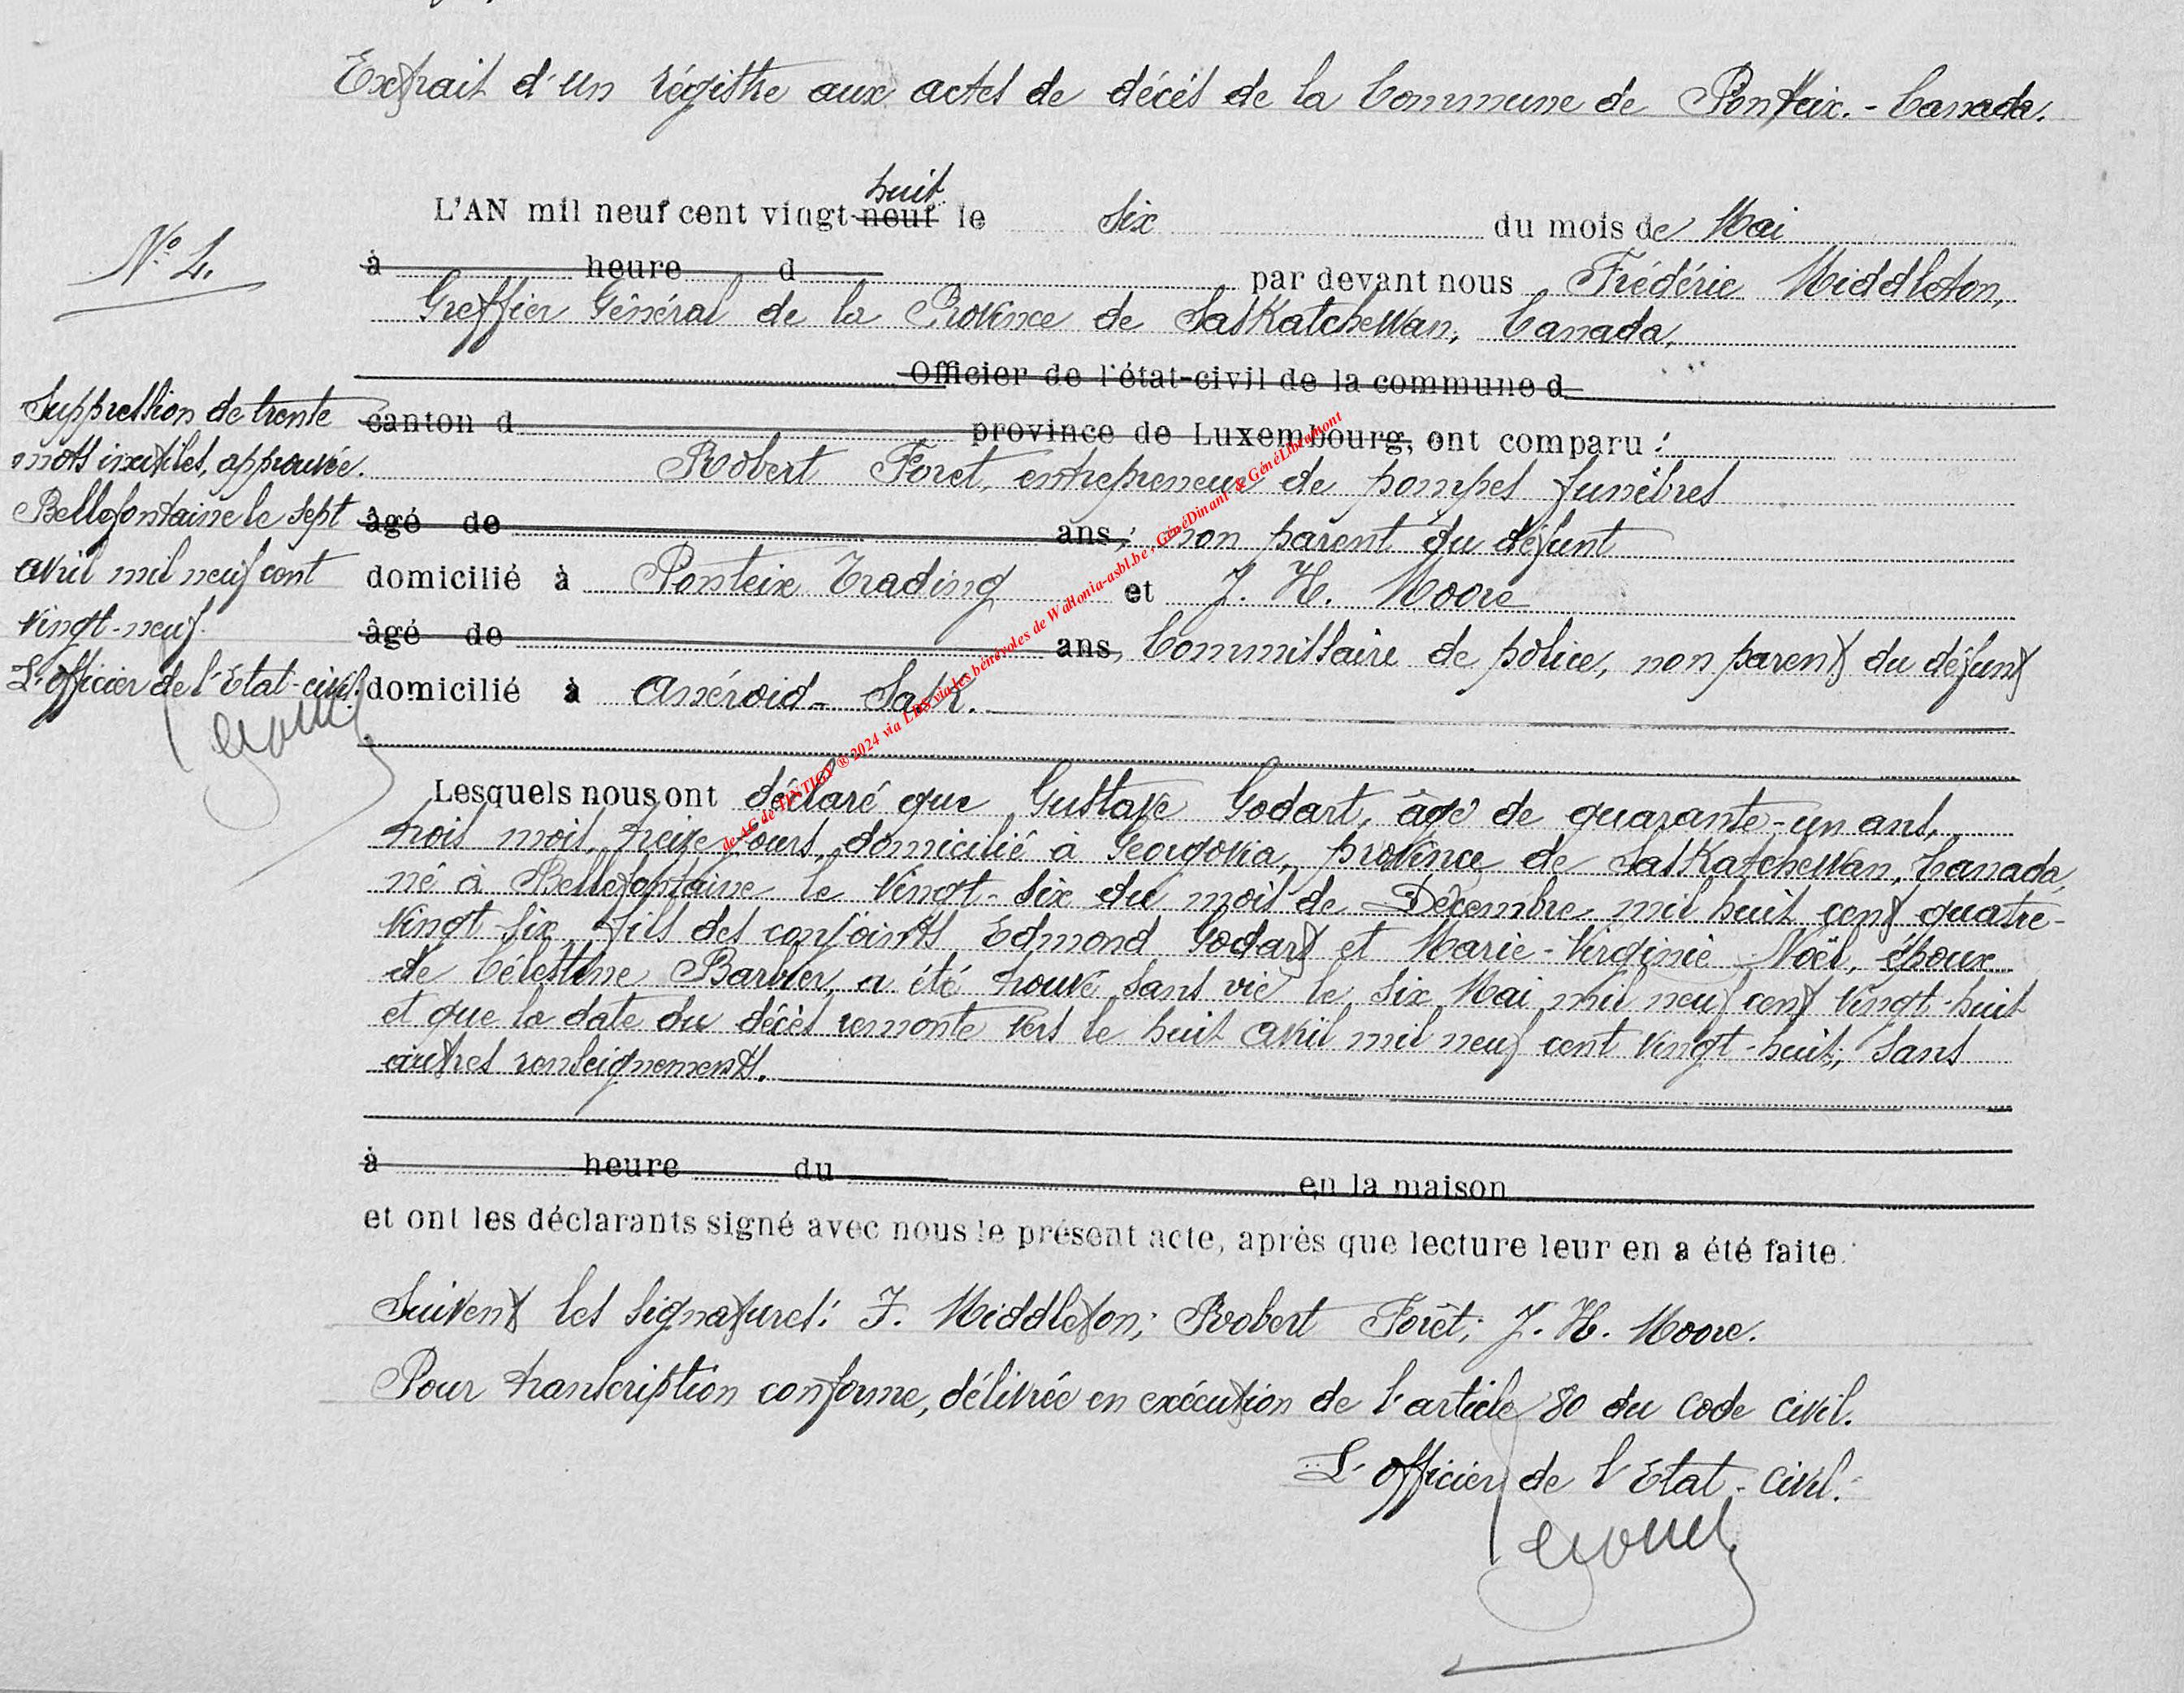 Extrait d'un régistre aux actes de décès de la Commune de Ponteix. - Canada.
huit
L'AN mil neuf cent vingt-neuf le six du mois de Mai
N° 4.
à heure d par devant nous Frédéric Middleton,
Greffier Général de la Province de Saskatchewan, Canada,
Officier de l'état-civil de la commune d
canton d province de Luxembourg, ont comparu :
Robert Foret, entrepreneur de pompes funèbres
âgé de ans, non parent du défunt
domicilié à Ponteix Trading et J. H. Moore
âgé de ans, Commissaire de police, non parent du défunt
domicilié à Anéroid - Sask.
Suppression de trente
mots inutiles, approuvée.
Bellefontaine le sept
avril mil neuf cent
vingt-neuf.
L'officier de l'Etat-civil.
Lesquels nous ont déclaré que Gustave Godart, âgé de quarante-un ans,
trois mois, treize jours, domicilié à Georgovia, province de Saskatchewan, Canada,
né à Bellefontaine le vingt-six du mois de Décembre mil huit cent quatre-
vingt-six, fils des conjoints Edmond Godart et Marie-Virginie Noël, époux
de Célestine Barbier, a été trouvé sans vie le six Mai mil neuf cent vingt-huit
et que la date du décès remonte vers le huit avril mil neuf cent vingt-huit, sans
autres renseignements.
à heure du en la maison
et ont les déclarants signé avec nous le présent acte, après que lecture leur en a été faite.
Suivent les signatures: F. Middleton; Robert Forêt; J. H. Moore.
Pour transcription conforme, délivrée en exécution de l'article 80 du code civil.
L'officier de l'Etat-civil.
de AG de TINTIGY ® 2024 via LDS via les bénévoles de Wallonia-asbl.be, GénéDinant & GénéLibramont